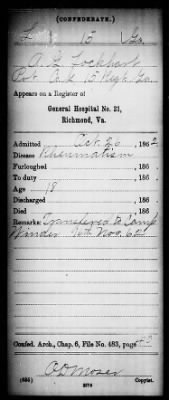 (CONFEDERATE.)
L 15 Ga.
A. Z. Lockhart
Pvt. Co. L 15 Regt. Ga.
Appears on a Register of
General Hospital No. 21,
Richmond, Va.
Admitted Oct. 26, 1862
Disease Rheumatism
Furloughed , 186
To duty , 186
Age 18
Discharged , 186
Died , 186
Remarks: Transferred to Camp
Winder Nov. 6
Confed. Arch., Chap. 6, File No. 483, page
O D Moser
Copyist.